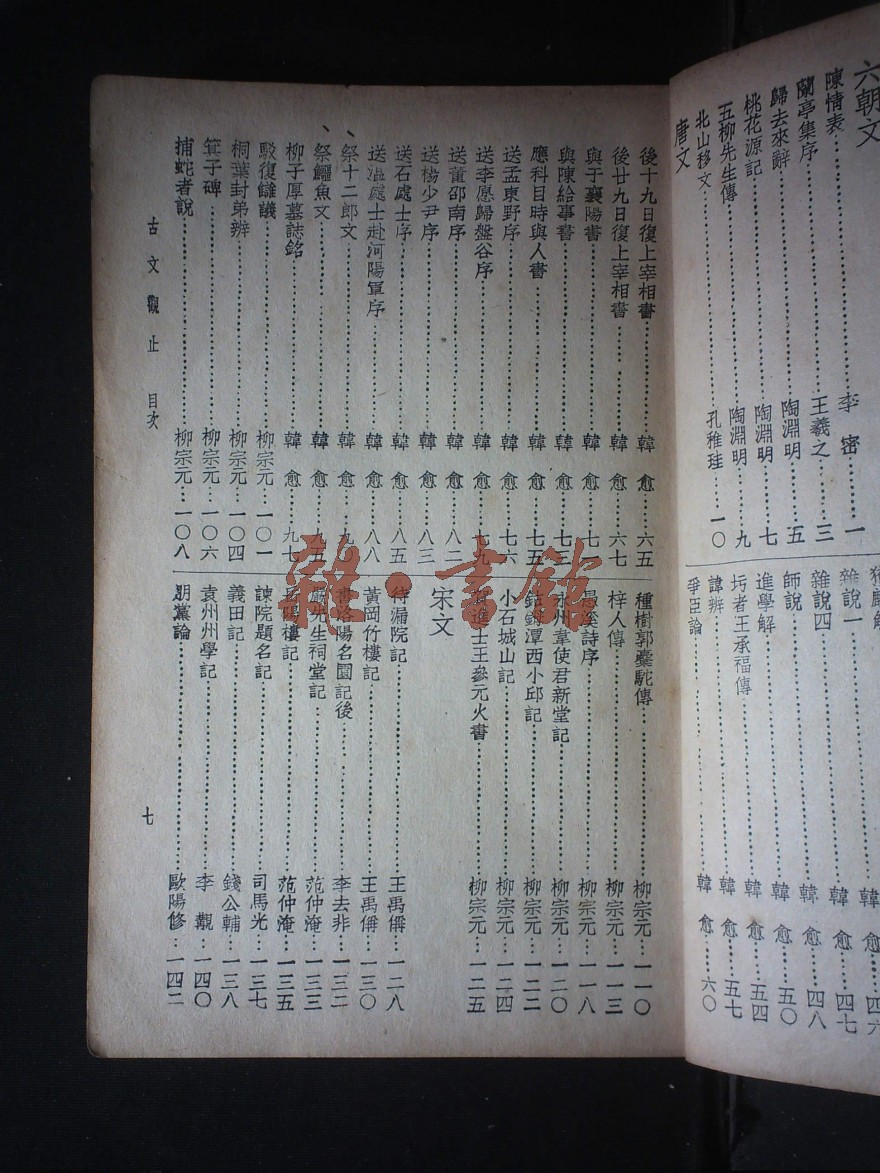 六朝文
陳情表 李密 一
蘭亭集序 王羲之 三
歸去來辭 陶淵明 五
桃花源記 陶淵明 七
五柳先生傳 陶淵明 九
北山移文 孔稚珪 一〇
唐文
雜說一 韓愈 四七
雜說四 韓愈 四八
師說 韓愈 五〇
進學解 韓愈 五四
圬者王承福傳 韓愈 五七
諱辨 韓愈 六〇
爭臣論
後十九日復上宰相書 韓愈 六五
後廿九日復上宰相書 韓愈 六七
與于襄陽書 韓愈 七一
與陳給事書 韓愈 七三
應科目時與人書 韓愈 七五
送孟東野序 韓愈 七六
送李愿歸盤谷序 韓愈 七九
送董邵南序 韓愈 八二
送楊少尹序 韓愈 八三
送石處士序 韓愈 八五
送溫處士赴河陽軍序 韓愈 八八
祭十二郎文 韓愈 九〇
祭鱷魚文 韓愈 九五
柳子厚墓誌銘 韓愈 九七
駁復讎議 柳宗元 一〇一
桐葉封弟辨 柳宗元 一〇四
箕子碑 柳宗元 一〇六
捕蛇者說 柳宗元 一〇八
種樹郭橐駝傳 柳宗元 一一〇
梓人傳 柳宗元 一一三
愚溪詩序 柳宗元 一一八
永州韋使君新堂記 柳宗元 一二〇
鈷鉧潭西小邱記 柳宗元 一二二
小石城山記 柳宗元 一二四
進士王參元火書 柳宗元 一二五
宋文
待漏院記 王禹偁 一二八
黃岡竹樓記 王禹偁 一三〇
書洛陽名園記後 李去非 一三二
嚴先生祠堂記 范仲淹 一三三
岳陽樓記 范仲淹 一三五
諫院題名記 司馬光 一三七
義田記 錢公輔 一三八
袁州州學記 李覯 一四〇
朋黨論 歐陽修 一四二
古文觀止 目次
七
雜·書館